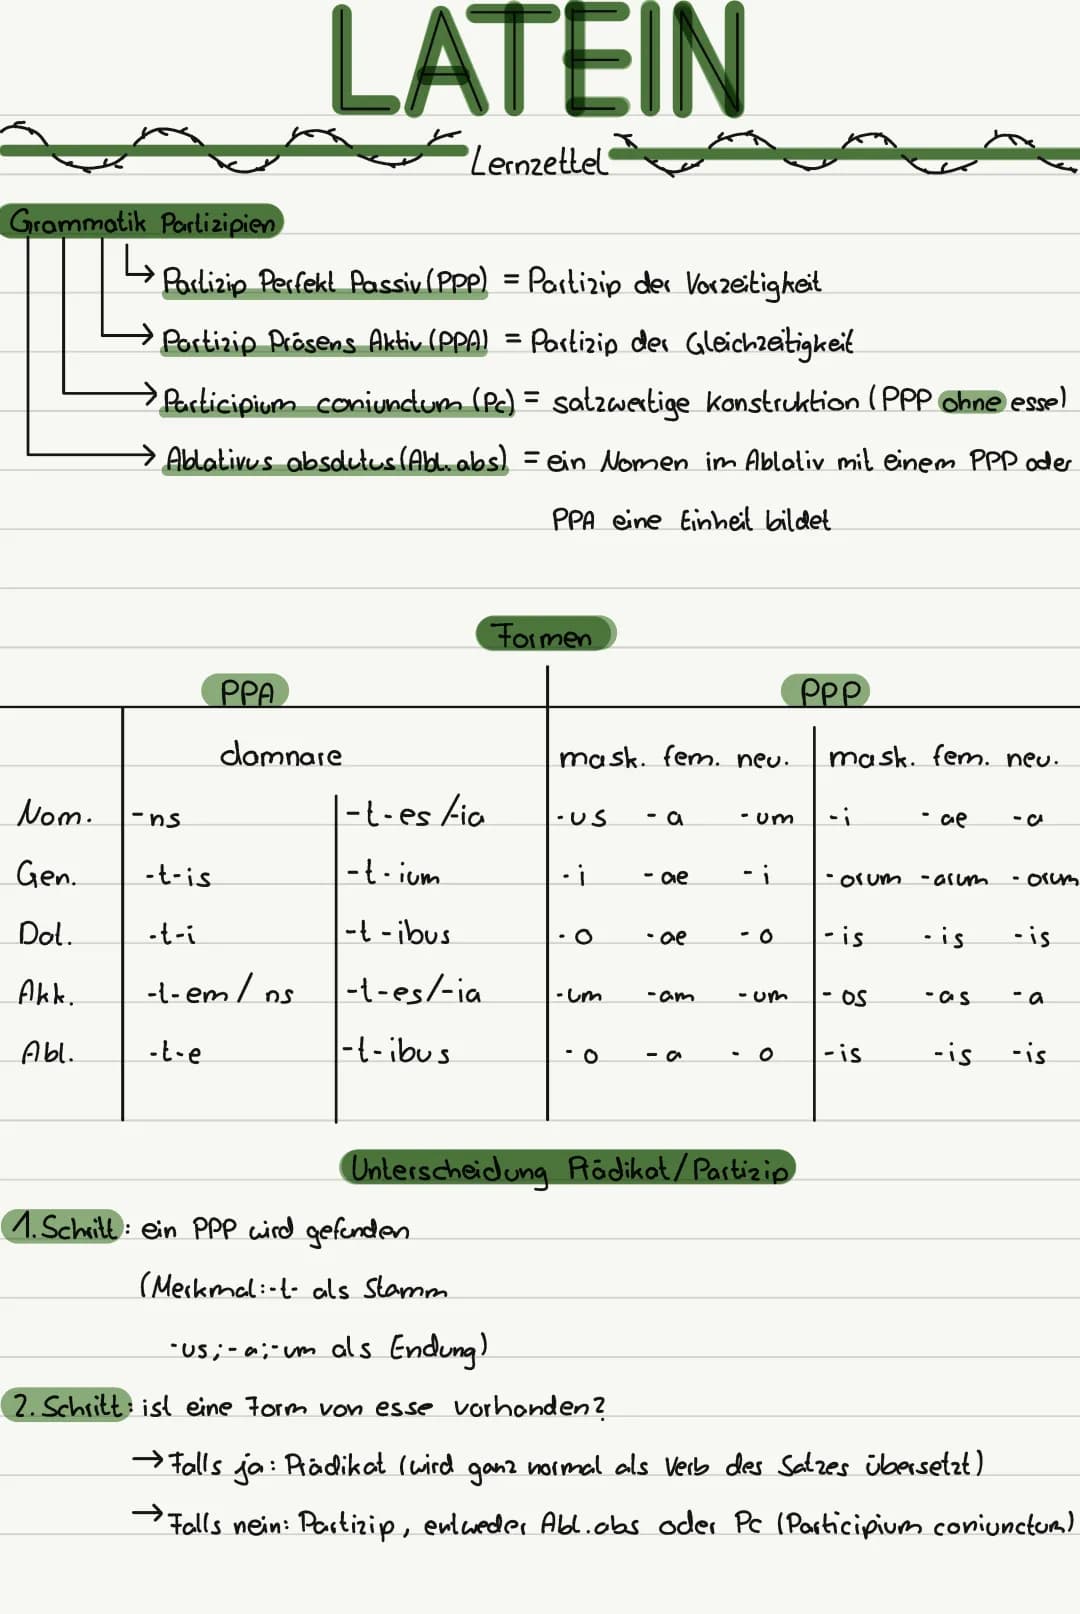 LATEIN
Lernzettel
Grammatik Partizipien
Partizip Perfekt Passiv (PPP) = Partizip der Vorzeitigkeit
Partizip Präsens Aktiv (PPA) = Partizip der Gleichzeitigkeit
Participium coniunctum (Pc) = satzwertige Konstruktion (PPP ohne esse)
Ablativus absolutus (Abl. abs) = ein Nomen im Ablativ mit einem PPP oder
PPA eine Einheit bildet
Formen
PPA PPP
damnare mask. fem. neu. mask. fem. neu.
Nom. -ns -t-es/-ia -us -a -um -i -ae -a
Gen. -t-is -t-ium -i -ae -i -orum -arum -orum
Dat. -t-i -t-ibus -o -ae -o -is -is -is
Akk. -t-em/ns -t-es/-ia -um -am -um -os -as -a
Abl. -t-e -t-ibus -o -a -o -is -is -is
Unterscheidung Prädikat/Partizip
1. Schritt: ein PPP wird gefunden
(Merkmal:-t- als Stamm
-us;-a;-um als Endung)
2. Schritt: ist eine Form von esse vorhanden?
→ Falls ja: Prädikat (wird ganz normal als Verb des Satzes übersetzt)
→ Falls nein: Partizip, entweder Abl.abs oder Pc (Participium coniunctum)